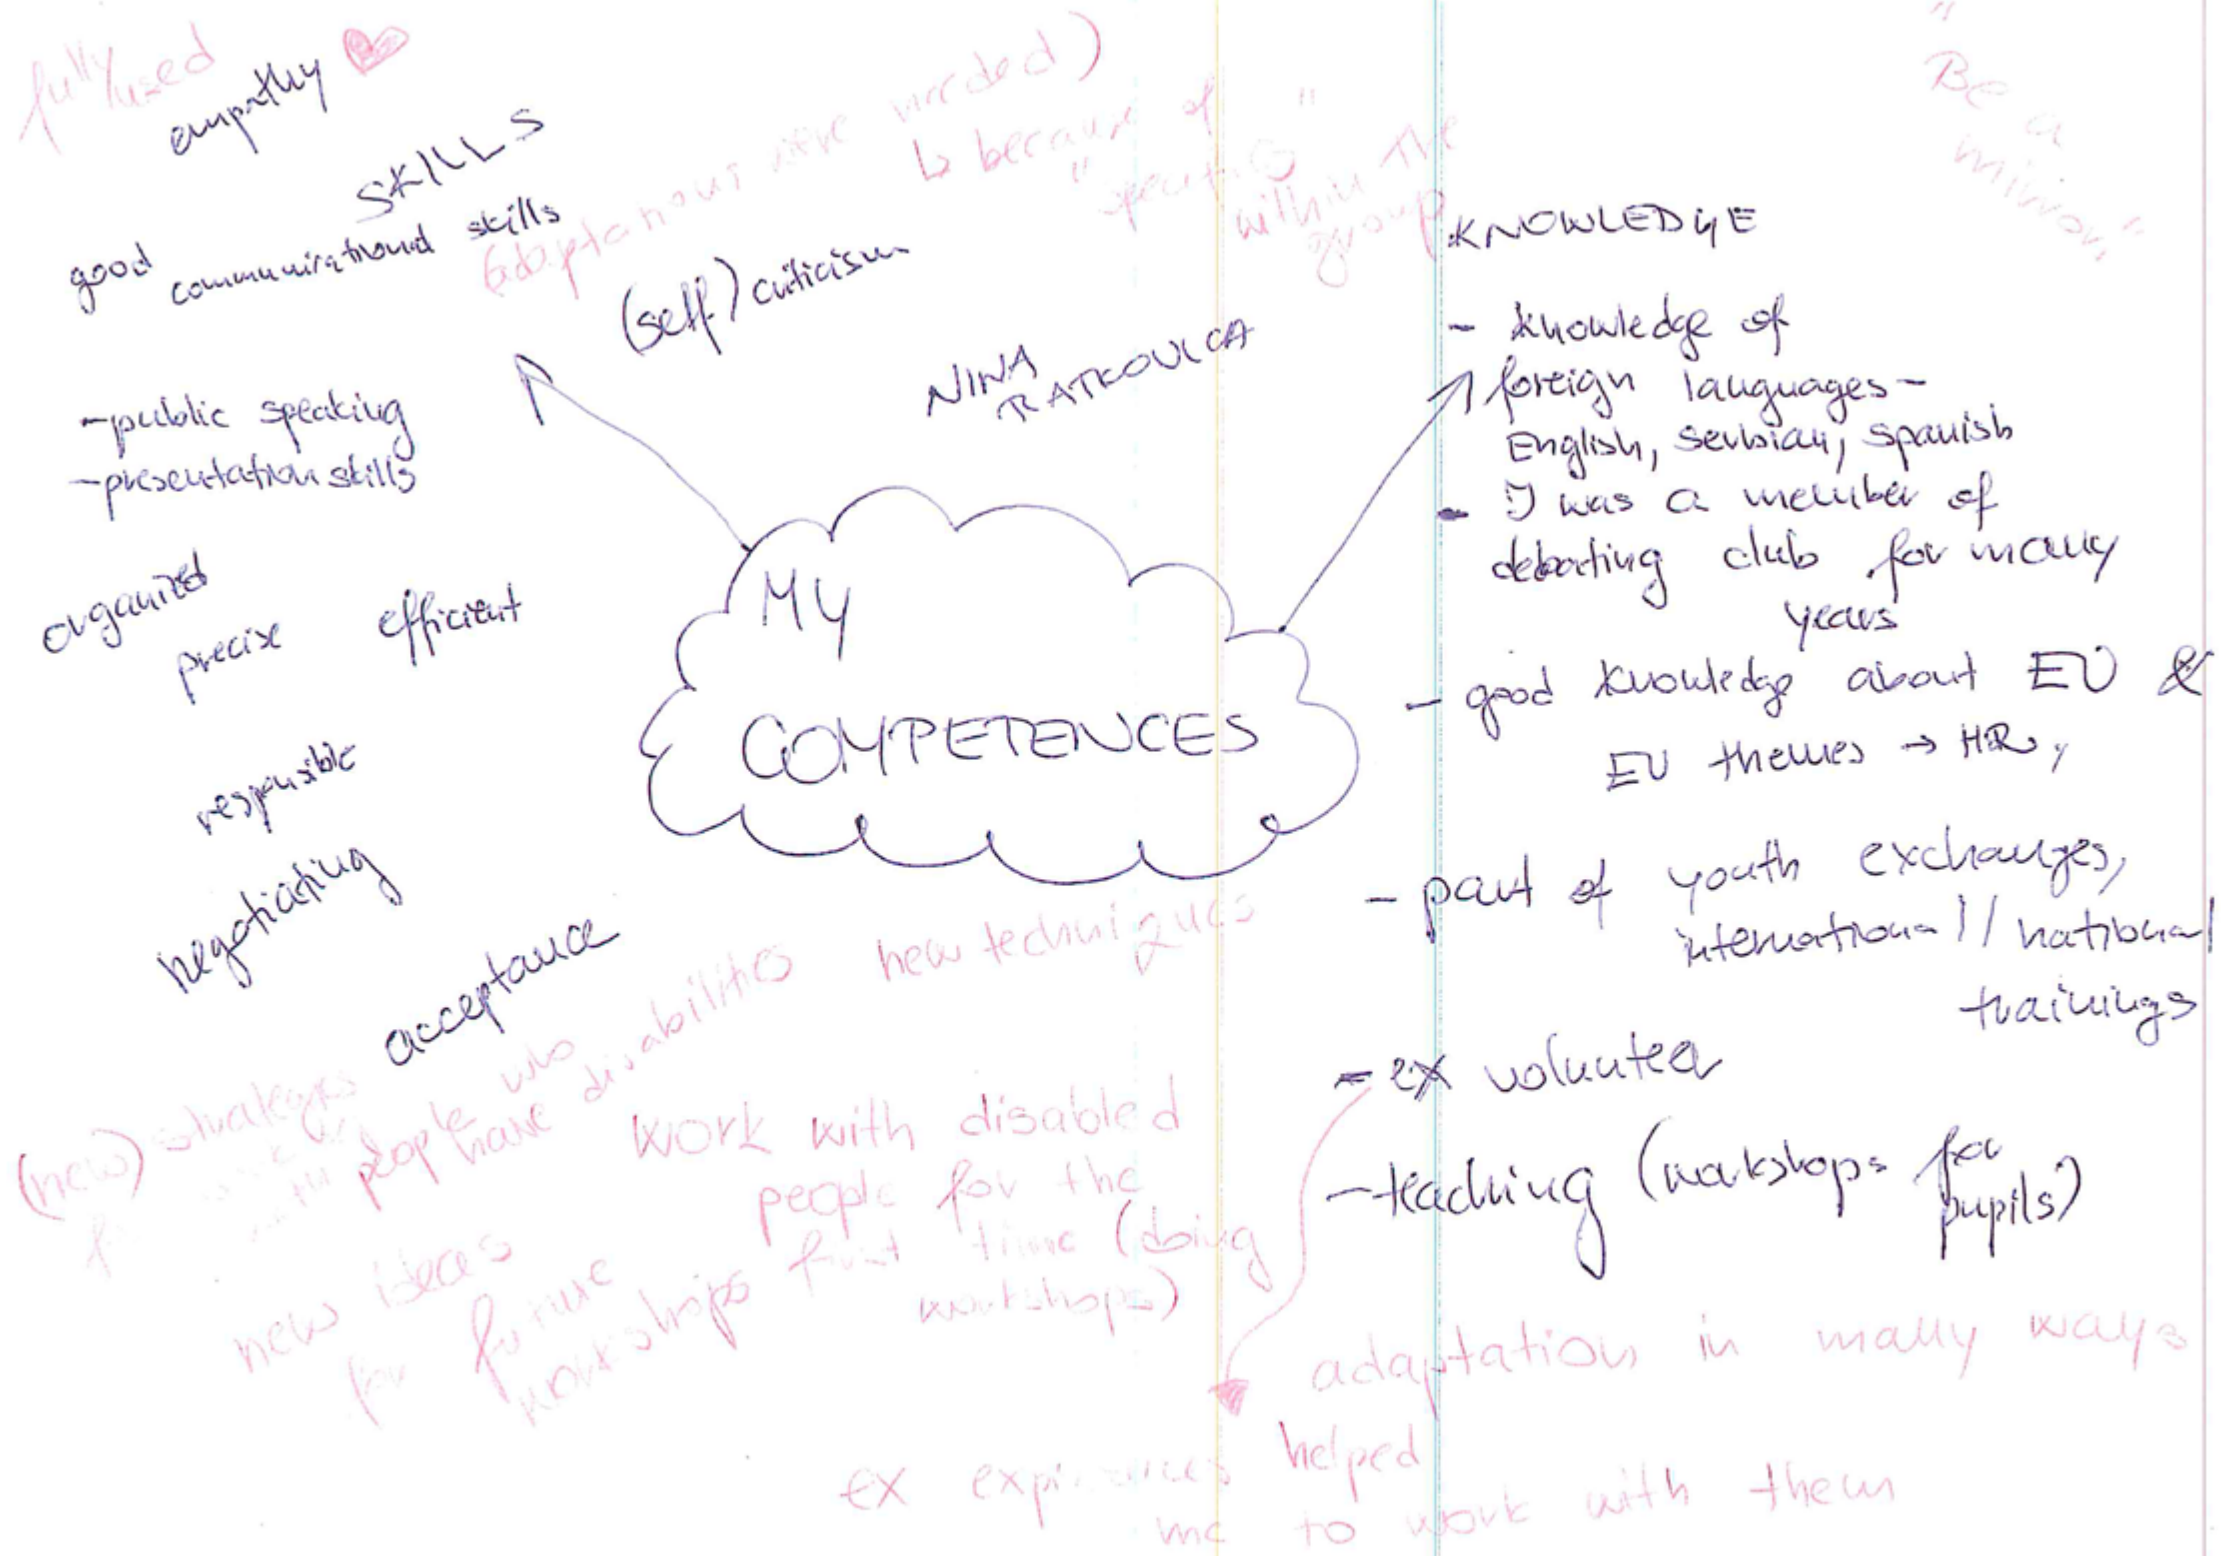 fully used
empathy
SKILLS
good communicational skills
(adaptations were needed)
↳ because of
"specific"
within the
group
"Be
a
mirror"
(self) criticism
NINA
RATKOVICA
- public speaking
- presentation skills
organized
precise
efficient
responsible
negotiating
acceptance
MY
COMPETENCES
KNOWLEDGE
- knowledge of
foreign languages -
English, Serbian, Spanish
- I was a member of
debating club for many
years
- good knowledge about EU &
EU themes → HR,
- part of youth exchanges,
international // national
trainings
- ex volunteer
- teaching (workshops for
pupils)
new techniques
(new) strategies
people who
have disabilities
work with disabled
people for the
first time (doing
workshops)
new ideas
for future
workshops
adaptation in many ways
ex experiences helped
me to work with them